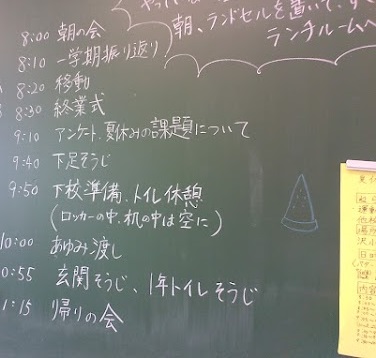 朝、ランドセルを置いて、す
ランチルームへ
8:00 朝の会
8:10 一学期振り返り
8:20 移動
8:30 終業式
9:10 アンケート、夏休みの課題について
9:40 下足そうじ
9:50 下校準備、トイレ休憩
(ロッカーの中、机の中は空に)
10:00 あゆみ渡し
0:55 玄関そうじ、1年トイレそうじ
1:15 帰りの会